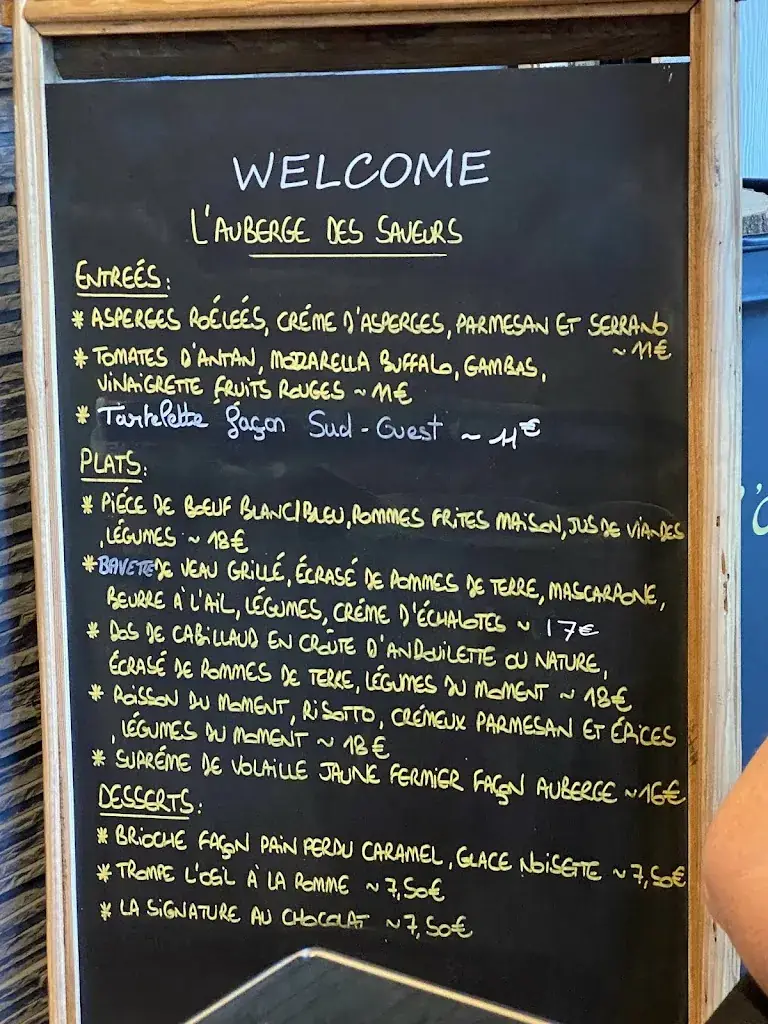 WELCOME
L'AUBERGE DES SAVEURS
ENTREÉS:
* ASPERGES POÉLEÉS, CRÉME D'ASPERGES, PARMESAN ET SERRANO
~ 11€
* TOMATES D'ANTAN, MOZZARELLA BUFFALO, GAMBAS,
VINAIGRETTE FRUITS ROUGES ~ 11€
* Tartelette façon Sud-Ouest ~ 11€
PLATS:
* PIÉCE DE BŒUF BLANC/BLEU, POMMES FRITES MAISON, JUS DE VIANDES
, LÉGUMES ~ 18€
* BAVETE DE VEAU GRILLÉ, ÉCRASÉ DE POMMES DE TERRE, MASCARPONE,
BEURRE À L'AIL, LÉGUMES, CRÉME D'ÉCHALOTES ~ 17€
* DOS DE CABILLAUD EN CROÛTE D'ANDOUILETTE OU NATURE,
ÉCRASÉ DE POMMES DE TERRE, LÉGUMES DU MOMENT ~ 18€
* POISSON DU MOMENT, RISOTTO, CRÉMEUX PARMESAN ET ÉPICES
, LÉGUMES DU MOMENT ~ 18€
* SUPRÉME DE VOLAILLE JAUNE FERMIER FAÇON AUBERGE ~ 16€
DESSERTS:
* BRIOCHE FAÇON PAIN PERDU CARAMEL, GLACE NOISETTE ~ 7,50€
* TROMPE L'OEIL À LA POMME ~ 7,50€
* LA SIGNATURE AU CHOCOLAT ~ 7,50€